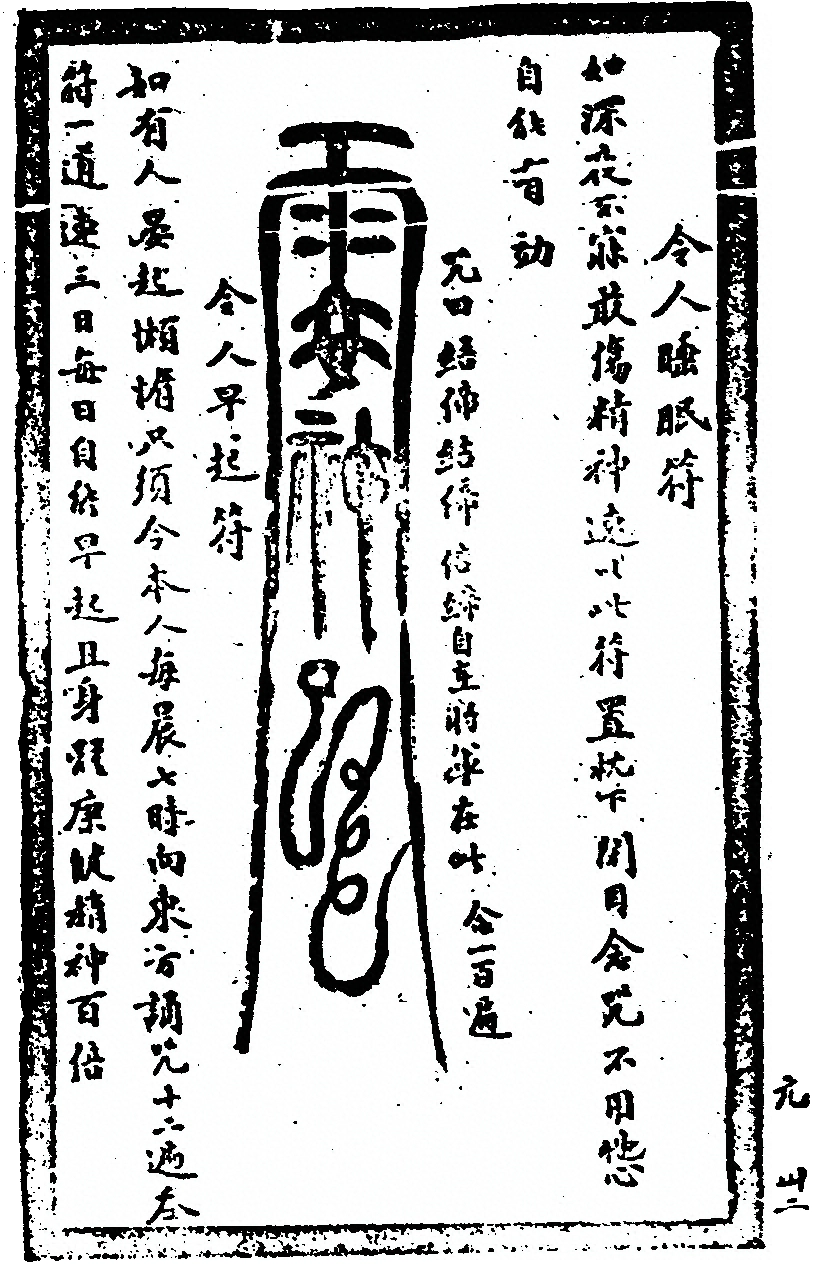 令人睡眠符
如深夜不寐最傷精神速以此符置枕下閉目念咒不用愁
自然有効
咒曰 唵啼 自在 在此 念一百遍
令人早起符
如有人晏起懶惰只須令本人每晨七時向東方誦咒十二遍左
符一道連三日每日自然早起且身體康健精神百倍
元 卅二